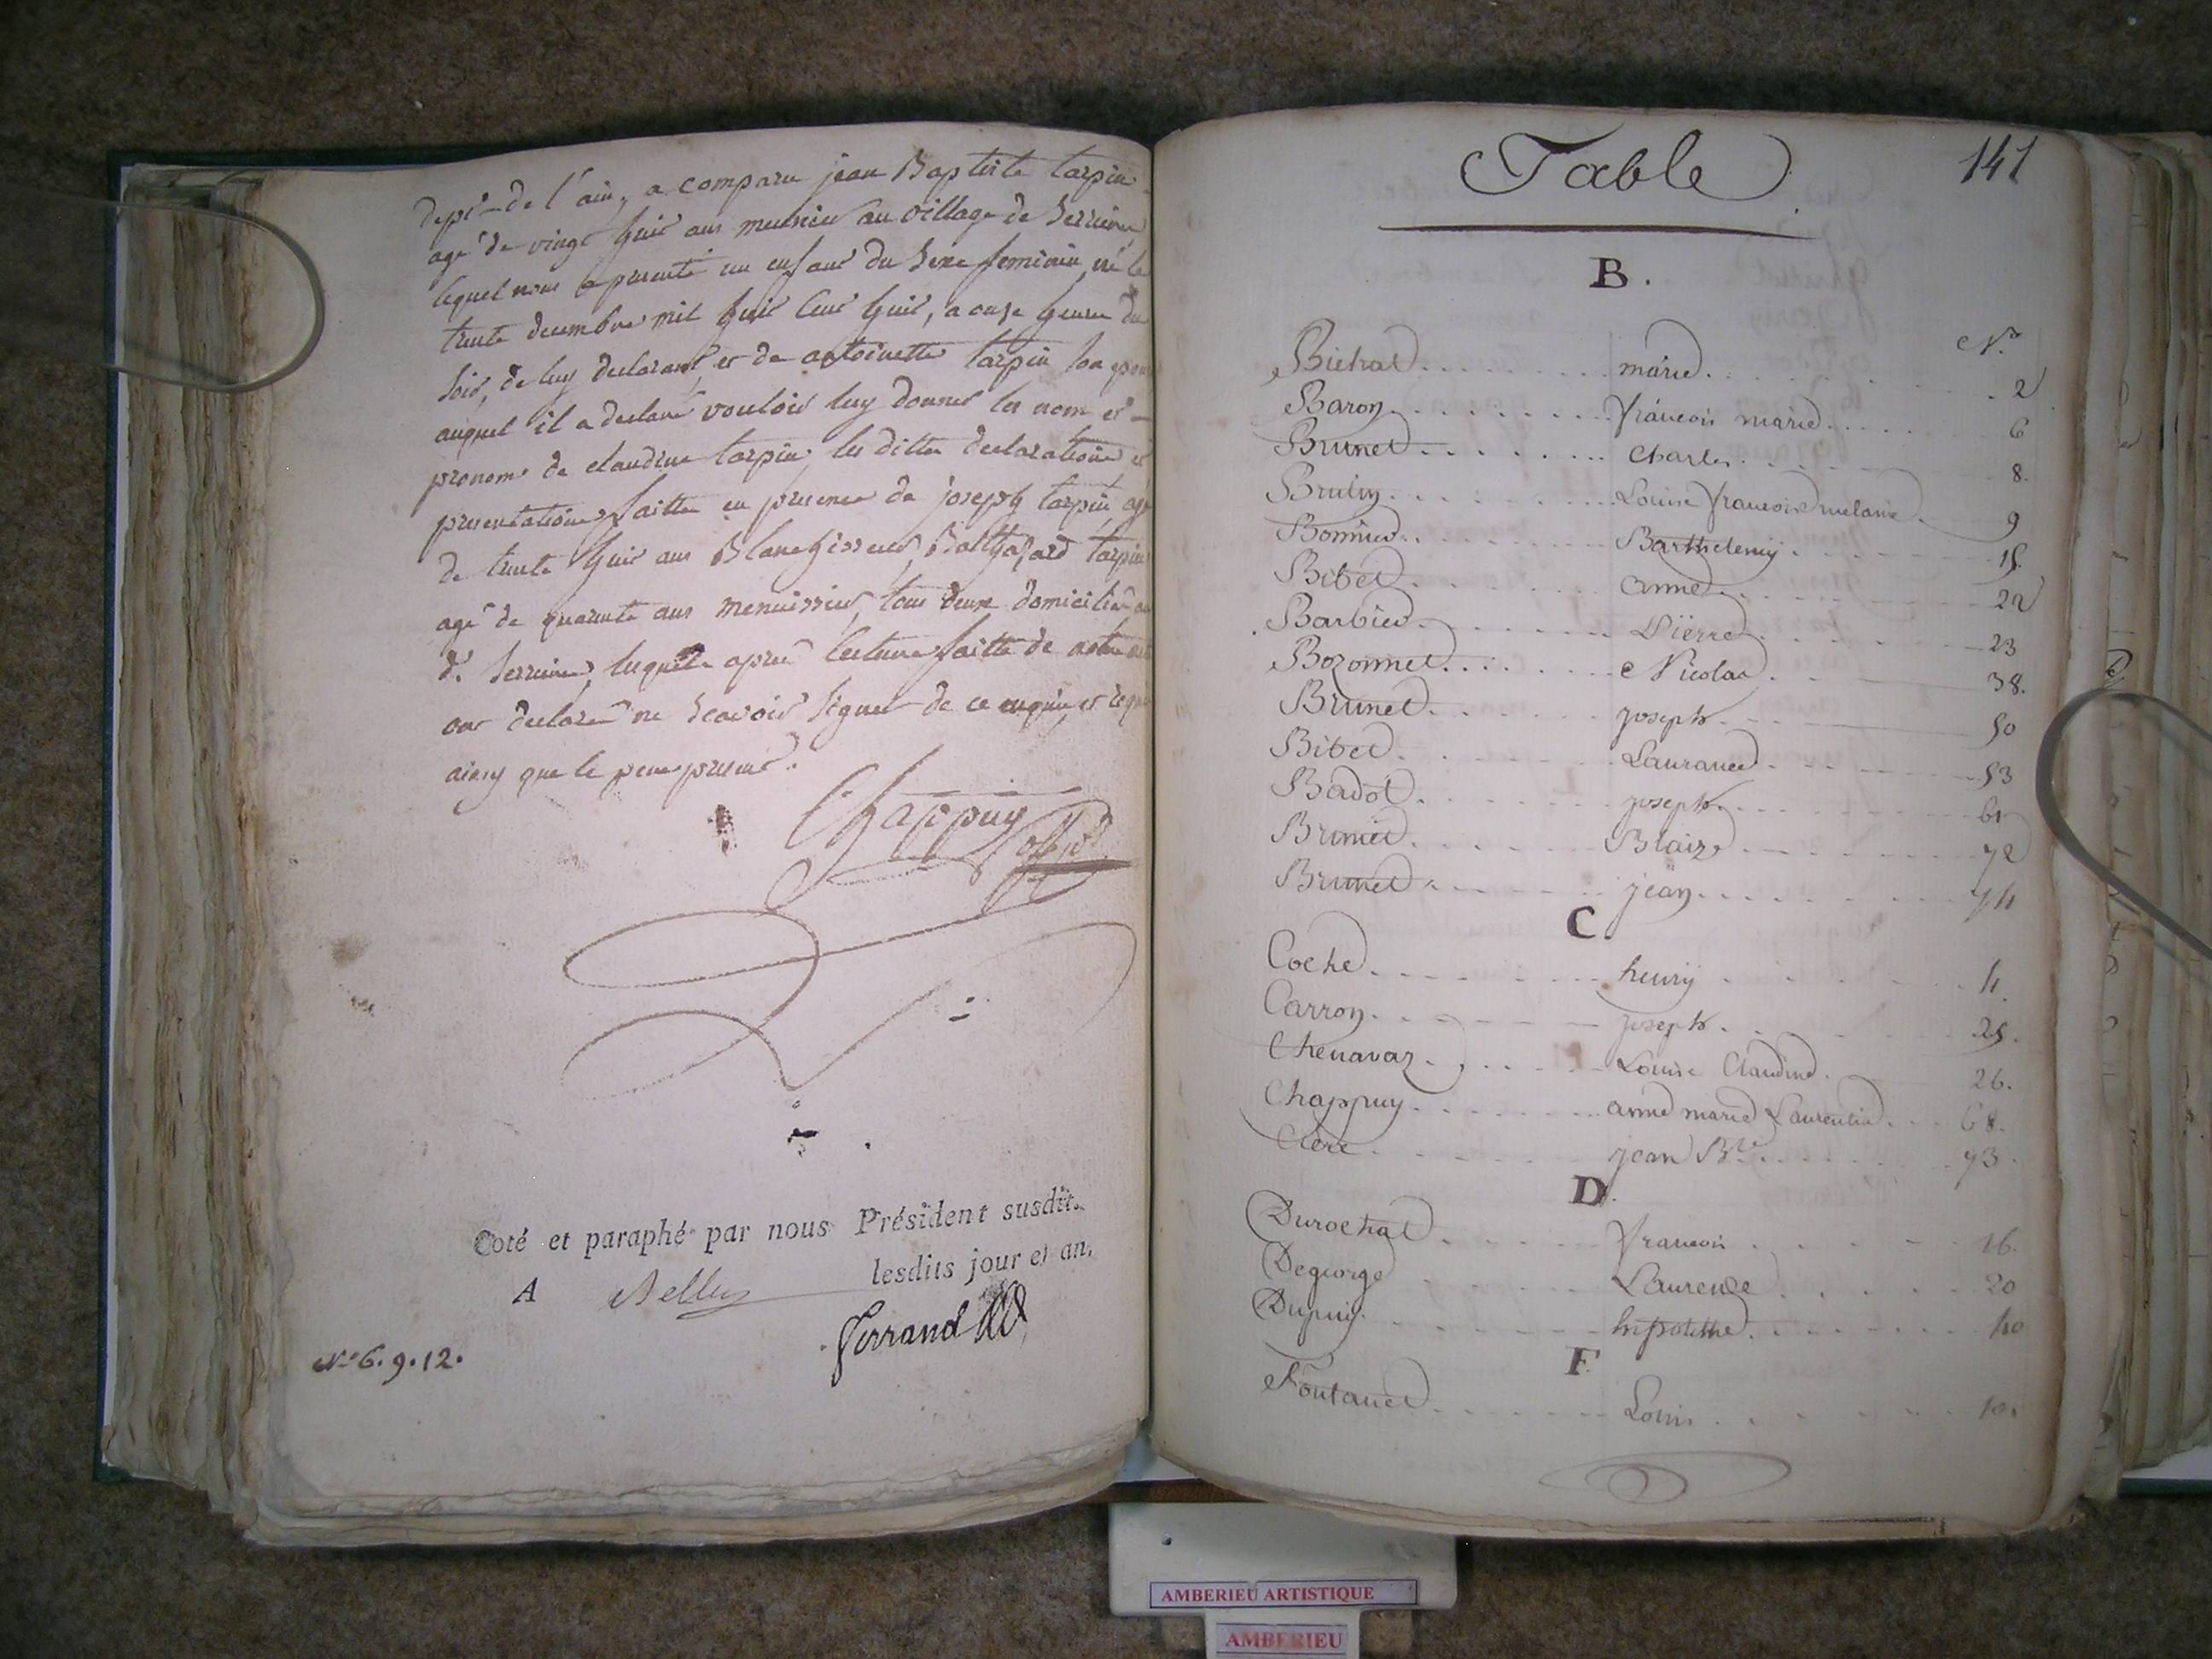 dept de l'ain, a comparu jean Baptiste tarpin
agé de vingt huit ans meunier au village de Serrieres
lequel nous a presenté un enfant du Sexe feminin, né le
trente decembre mil huit Cent huit, a onze heures du
soir, de luy declarant et de antoinette tarpin son
auquel il a declaré vouloir luy donner les nom et
prenom de claudine tarpin, les dittes declarations et
presentations faittes en presence de joseph tarpin agé
de trente huit ans Blanchisseur, Balthazard tarpin
agé de quarante ans menuissier, tous deux domiciliés
d. Serrieres, lesquels apres lecture faitte de notre
ont declaré ne Scavoir signer de ce enquis et
ainsy que le pere present.
Chappuy
Coté et paraphé par nous Président susdit.
A Belley lesdits jour et an.
Ferrand
No 6.9.12.
Table 141
B.
No
Bichat........ marie........ 2
Baron........ francois marie..... 6
Brunet........ Charles........ 8.
Brulin....... Louise francoise melanie. 9
Bonnier...... Barthelemy...... 15.
Bibet....... anne........ 22
Barbier....... Pierre....... 23
Bozonnet...... Nicolas....... 38.
Brunet....... joseph....... 50
Bibet....... Laurance...... 53
Badot....... joseph....... 61
Brunet....... Blaize....... 72
Brunet....... jean........ 74
C
Coche....... henry....... 4.
Carron....... joseph....... 25.
Chenavaz...... Louise Claudine. 26.
Chappuy....... anne marie Laurentine... 68.
Clere....... jean Bte....... 73.
D.
Durochat...... francois...... 16.
Degeorge...... Laurence..... 20
Dupuy....... hipolithe....... 40
F.
Fontanel...... Louis....... 10.
AMBERIEU ARTISTIQUE
AMBERIEU